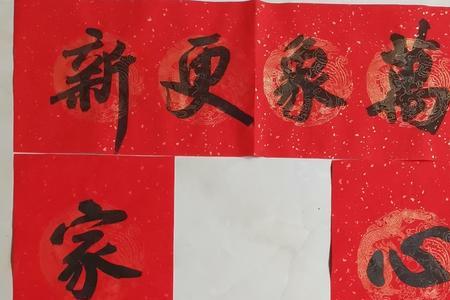 萬象更新
心
家